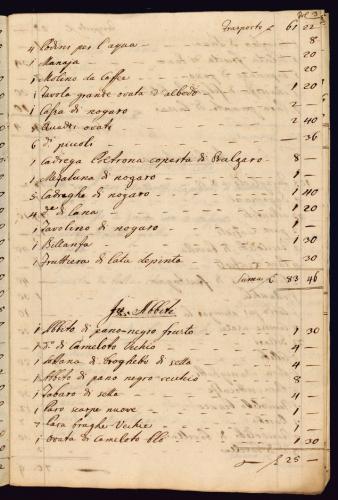 Trasporto £ 61 22
4 per l'acqua — — 8
1 Manaja — — 20
1 Molino da Caffè — —
1 Tavola grande ovata d'albedo 1 20
1 di nogaro — 2 —
Quadri ovati — 2 40
6 di piccoli — — 36
1 Cadrega coperta di Bulgaro — 8 —
1 Mezaluna di nogaro — 1 —
5 Cadreghe di nogaro — 1 40
4 di lana — 1 20
1 Tavolino di nogaro — 1 —
1 Bellanza — 1 30
1 Fruttiera di lata depinta — 30
Suma £ 83 46
Abbito di pano negro frusto — 1 30
1 di Cameloto Vechio — 4 —
1 di seta — 4 —
1 Abbito di pano negro vechio 8 —
1 Tabaro di seta — 4 —
1 Paro scarpe nuove — 1 —
Para braghe Vechie — 1 —
1 di Cameloto blò — 1 30
£ 25 —